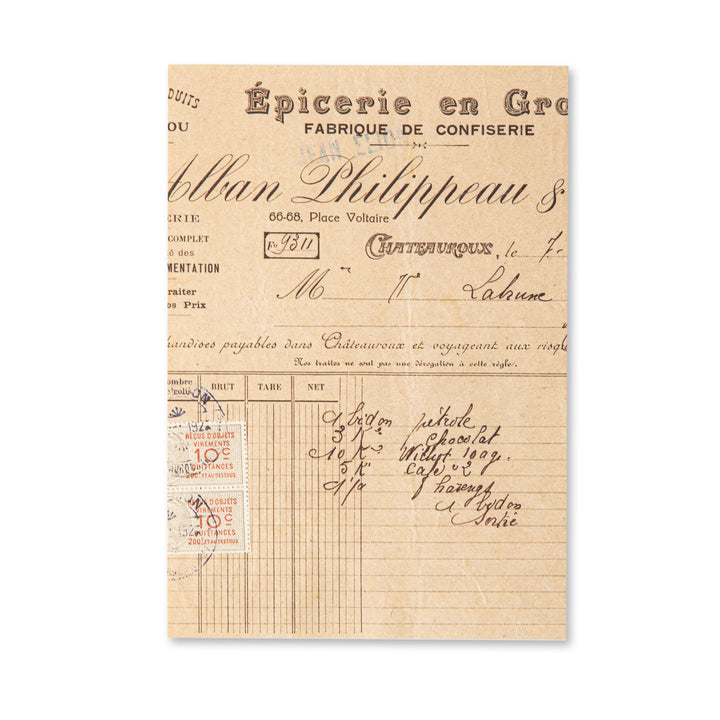 DUITS
Épicerie en Gro
OU
FABRIQUE DE CONFISERIE
JEAN
Alban Philippeau &
ERIE
66-68, Place Voltaire
COMPLET
Fo 9311
CHATEAUROUX, le 7-
é des
MENTATION
raiter
os Prix
M
Labrune
handises payables dans Châteauroux et voyageant aux risq
Nos traites ne sont pas une dérogation à cette règle.
ombre
colis
BRUT TARE NET
1 bidon pétrole
3 K Chocolat
10 K 100 g.
5 K Café n 2
harengs
1 bidon
Sortie
192
REÇUS D'OBJETS
VIREMENTS
10c
QUITTANCES
200F ET AU DESSOUS
192
S D'OBJETS
VIREMENTS
10c
QUITTANCES
200F ET AU DESSOUS